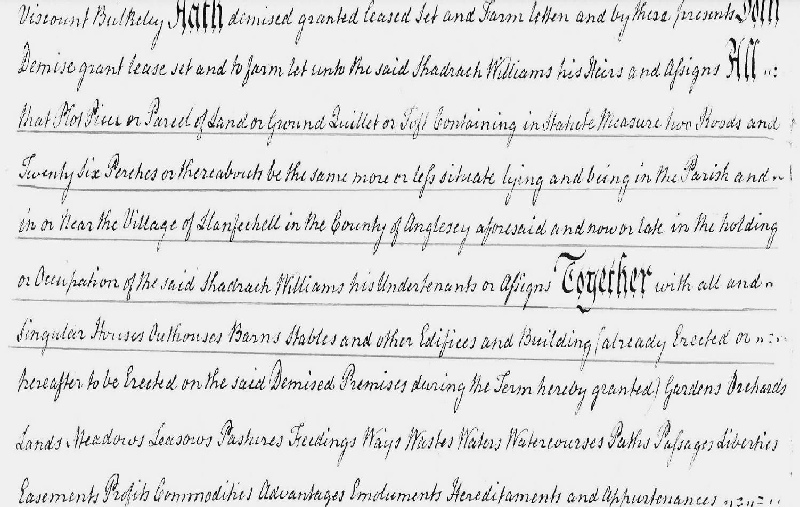 Viscount Bulkeley Hath demised granted leased set and Farm letten and by these presents Doth
Demise grant lease set and to farm let unto the said Shadrach Williams his Heirs and Assigns All
that Plot Piece or Parcel of Land or Ground Quillet or Toft Containing in Statute Measure two Roods and
Twenty Six Perches or thereabouts be the same more or less situate lying and being in the Parish and
in or Near the Village of Llanfechell in the County of Anglesey aforesaid and now or late in the holding
or Occupation of the said Shadrach Williams his Undertenants or Assigns Together with all and
Singular Houses Outhouses Barns Stables and other Edifices and Building (already Erected or
hereafter to be Erected on the said Demised Premises during the Term hereby granted) Gardens Orchards
Lands Meadows Leasows Pastures Feedings Ways Wastes Waters Watercourses Paths Passages Liberties
Easements Profits Commodities Advantages Emoluments Hereditaments and Appurtenances